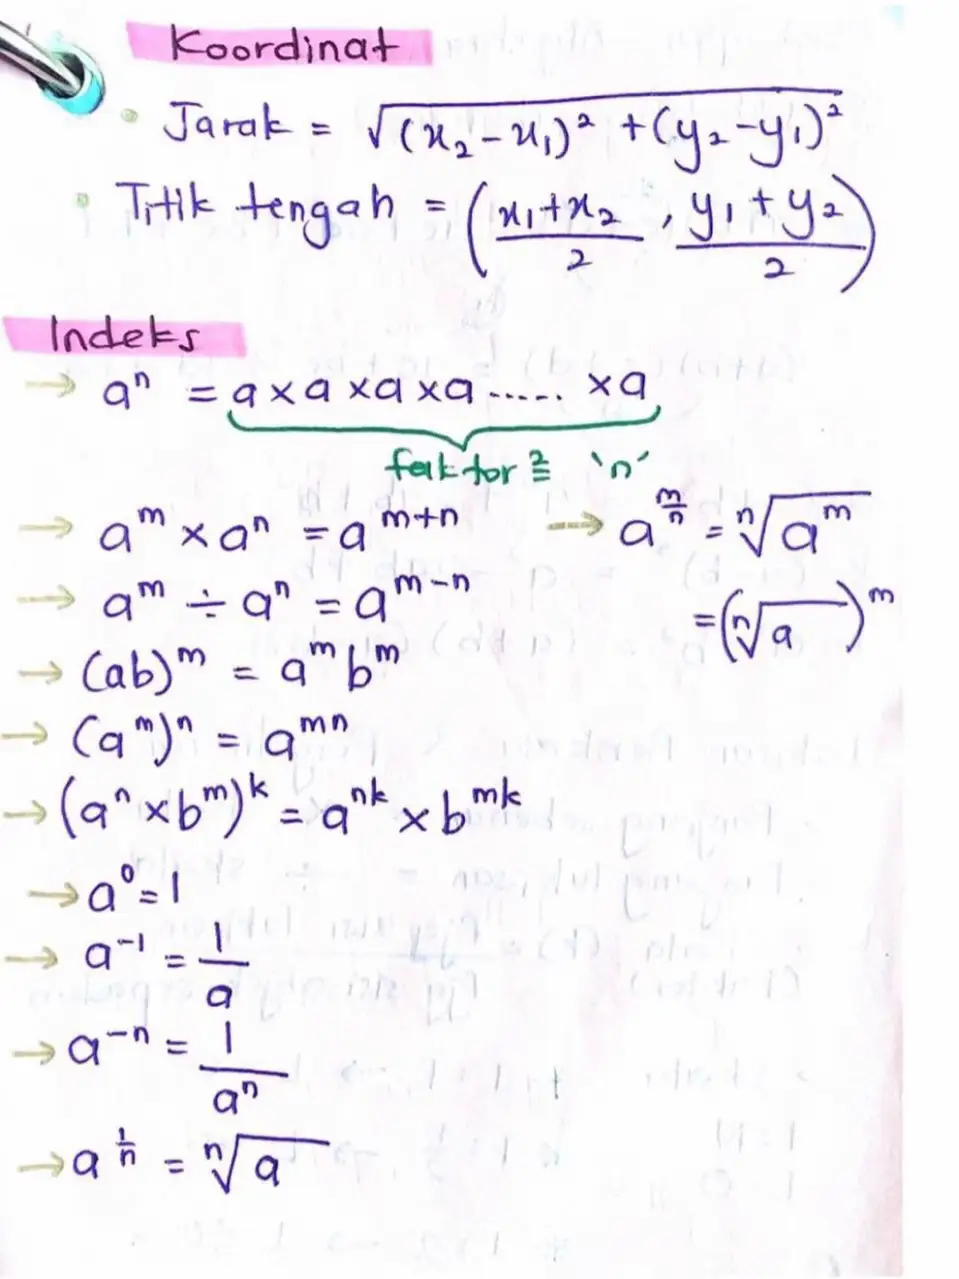 Koordinat
• Jarak = √((x₂ - x₁)² + (y₂ - y₁)²)
• Titik tengah = ((x₁ + x₂)/2 , (y₁ + y₂)/2)
Indeks
→ aⁿ = a × a × a × a ..... × a
faktor² 'n'
→ a^m × a^n = a^(m+n)
→ a^m ÷ a^n = a^(m-n)
→ (ab)^m = a^m b^m
→ (a^m)^n = a^(mn)
→ (a^n × b^m)^k = a^(nk) × b^(mk)
→ a⁰ = 1
→ a^(-1) = 1/a
→ a^(-n) = 1/a^n
→ a^(1/n) = ⁿ√a
→ a^(m/n) = ⁿ√(a^m)
= (ⁿ√a)^m